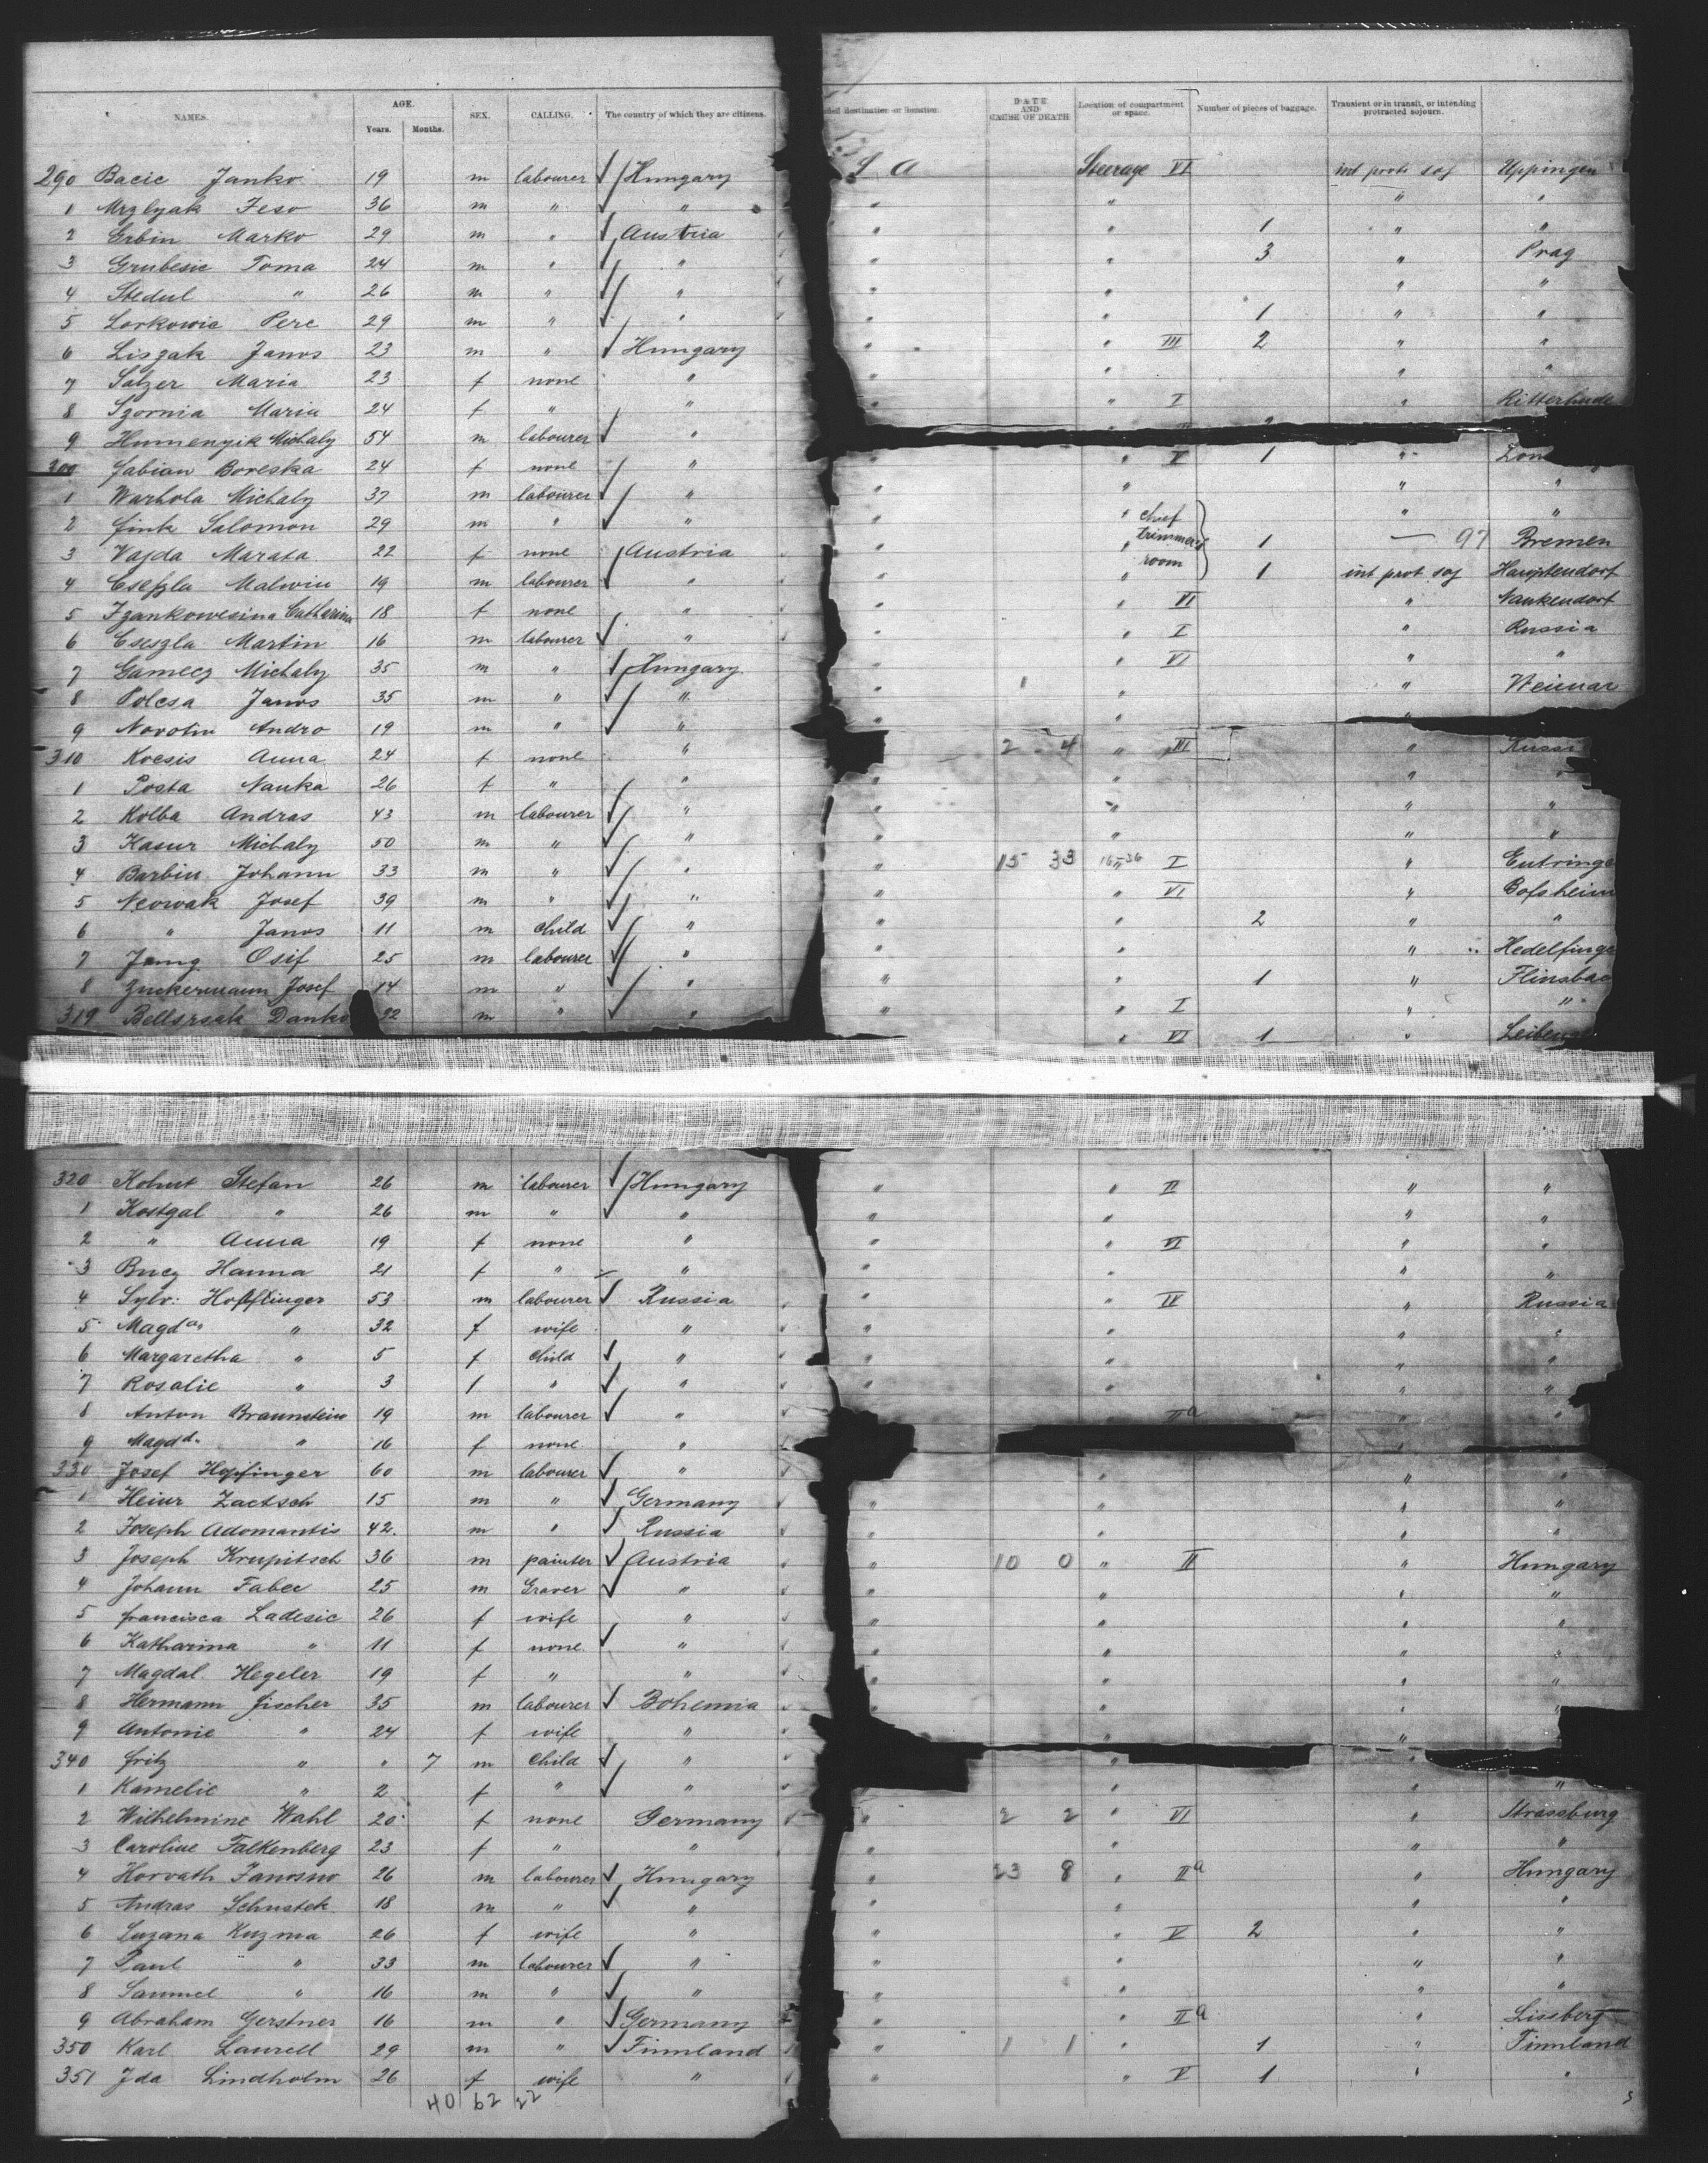 NAMES. AGE. Years. Months. SEX. CALLING. The country of which they are citizens. destination or location. DATE AND CAUSE OF DEATH Location of compartment or space. Number of pieces of baggage. Transient or in transit, or intending protracted sojourn.
290 Bacic Janko 19 m labourer Hungary S A Steerage VI int prot soj Uppingen
1 Mrzlyak Jeso 36 m " " " " " "
2 Grbin Marko 29 m " Austria " " 1 " "
3 Grubesic Toma 24 m " " " " 3 " Prag
4 Stedul " 26 m " " " " " "
5 Lorkowic Pere 29 m " " " " 1 " "
6 Liszak Janos 23 m " Hungary " " III 2 " "
7 Salzer Maria 23 f none " " " " "
8 Szornia Maria 24 f " " " " I " Ritterhude
9 Humenyik Michaly 54 m labourer "
300 Fabian Boreska 24 f none " " " V 1 "
1 Warhola Michaly 37 m labourer " " " " "
2 Fink Salomon 29 m " " " " chief trimmers room " "
3 Vajda Marata 22 f none Austria " " 1 — 97 Bremen
4 Csefzla Malwin 19 m labourer " " " 1 int prot soj Hauptendorf
5 Izankowesina Catharina 18 f none " " VI " Naukendorf
6 Cseszla Martin 16 m labourer " " " I " Russia
7 Gamecz Michaly 35 m " Hungary " " VI " "
8 Polcsa Janos 35 m " " " 1 " " Weimar
9 Novotin Andro 19 m " " " " "
310 Kocsis Anna 24 f none " 2 4 " III "
1 Posta Nanka 26 f " " " " " "
2 Kolba Andras 43 m labourer " " " " "
3 Kasur Michaly 50 m " " " " " "
4 Barbin Johann 33 m " " " 15 33 I "
5 Neowak Josef 39 m " " " " VI " Bofsheim
6 " Janos 11 m child " " " 2 " "
7 Jang Osif 25 m labourer " " " "
8 Zuckermann Josef 14 m " " " " 1 "
319 Danko 32 m " " " " I " "
" VI 1 "
320 Kohut Stefan 26 m labourer Hungary " " III " "
1 Kostgal " 26 m " " " " " "
2 " Anna 19 f none " " " VI " "
3 Bucz Hanna 21 f " " " " " "
4 Sylv: Hopfinger 53 m labourer Russia " " IV " Russia
5 Magda " 32 f wife " " " " "
6 Margaretha " 5 f child " " " " "
7 Rosalie " 3 f " " " " " "
8 Anton Braunstein 19 m labourer " IIa " "
9 Magdd. " 16 f none " "
330 Josef Hopfinger 60 m labourer " " " "
1 Heinr Zactsch 15 m " Germany " " " "
2 Joseph Adomantis 42 m " Russia " " " "
3 Joseph Krupitsch 36 m painter Austria " 10 0 " II " Hungary
4 Johann Fabec 25 m Graver " " " " "
5 Francisca Ladesic 26 f wife " " " " "
6 Katharina " 11 f none " " " " "
7 Magdal. Hegeler 19 f " " " " " "
8 Hermann Fischer 35 m labourer Bohemia " " " "
9 Antonie " 24 f wife " " "
340 Fritz " " 7 m child " " "
1 Kamelie " 2 f " " " "
2 Wilhelmine Wahl 20 f none Germany " 2 2 " VI " Strassburg
3 Caroline Falkenberg 23 f " " " " " "
4 Horvath Janosno 26 m labourer Hungary " 23 8 " IIa " Hungary
5 Andras Schustek 18 m " " " " " "
6 Suzana Kuzma 26 f wife " " " V 2 " "
7 Paul " 33 m labourer " " " " "
8 Samuel " 16 m " " " " " "
9 Abraham Gerstner 16 m " Germany " " IIa " Lissberg
350 Karl Laurell 29 m " Finnland " 1 1 " 1 " Finnland
351 Ida Lindholm 26 f wife " " " V 1 " "
40 62 22